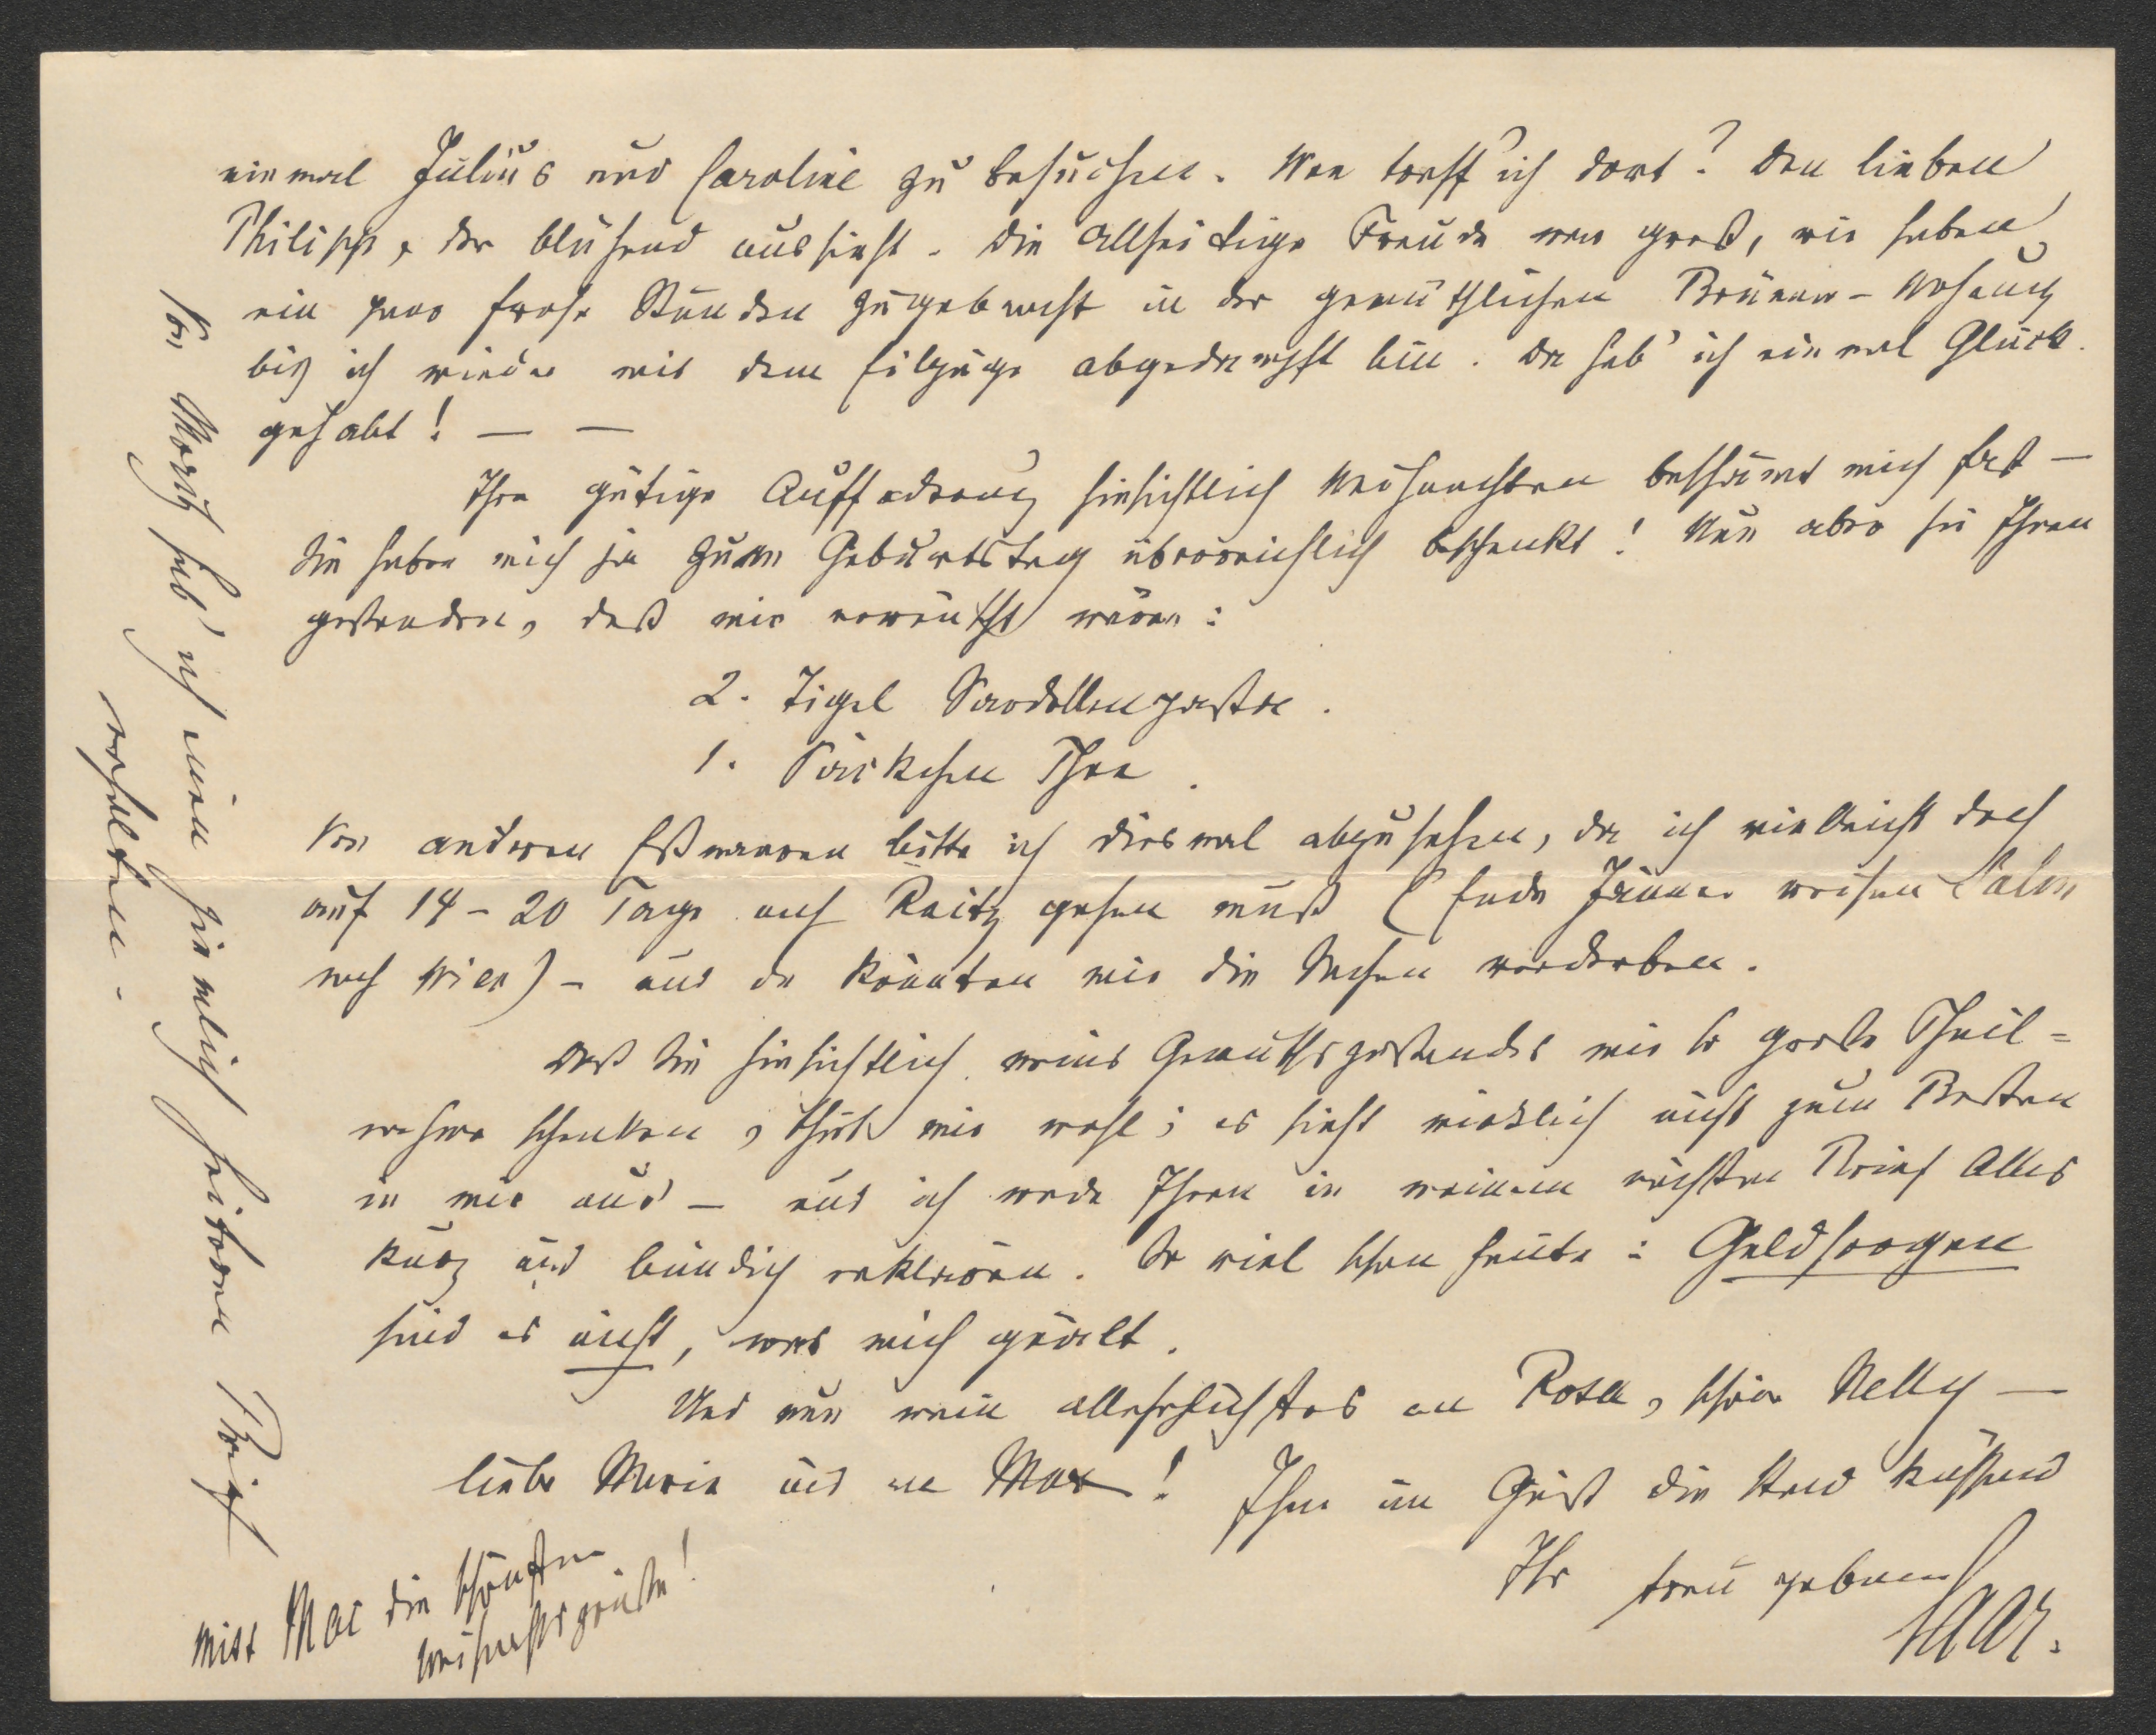 einmal Julius und Caroline zu besuchen. Wen treff' ich dort? Den lieben
Philipp, der blühend aussieht. Die allseitige Freude war groß, wir haben
ein paar frohe Stunden zugebracht in der gemüthlichen Brünner-Wohnung
bis ich wieder mit dem Eilzuge abgedampft bin. Da hab' ich einmal Glück
gehabt! — —
Ihre gütige Aufforderung hinsichtlich Weihnachten beschämt mich fast —
Sie haben mich ja zum Geburtstag überreichlich beschenkt! Nun aber sei Ihnen
gestanden, daß mir erwünscht wären:
2. Tigel Sardellenpasta.
1. Päckchen Thee.
Von anderen Eßwaaren bitte ich diesmal abzusehen, da ich vielleicht doch
auf 14 - 20 Tage nach Raitz gehen muß (Ende Jänner reisen Salm
nach Wien) - und da könnten mir die Sachen verderben.
Daß Sie hinsichtlich meines Gemüthszustandes mir so große Theil=
nahme schenken, thut mir wohl; es sieht wirklich nicht zum Besten
in mir aus - und ich werde Ihnen in meinem nächsten Brief Alles
kurz und bündig erklären. So viel schon heute: Geldsorgen
sind es nicht, was mich quält.
Und nun mein allerherzlichstes an Rosa, schöne Nelly —
liebe Marie und an Max! Ihnen im Geist die Hand küssend
Ihr treu ergebener
Saar.
Miss Mac die schönsten
Weihnachtsgrüße!
Von Moriz hab' ich einen ziemlich heiteren Brief
erhalten.